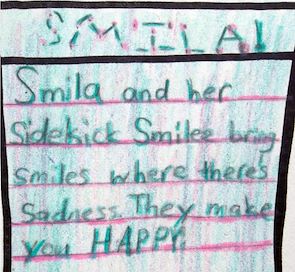 SMILA!
Smila and her
Sidekick Smilee bring
smiles where theres
Sadness. They make
you HAPPY!